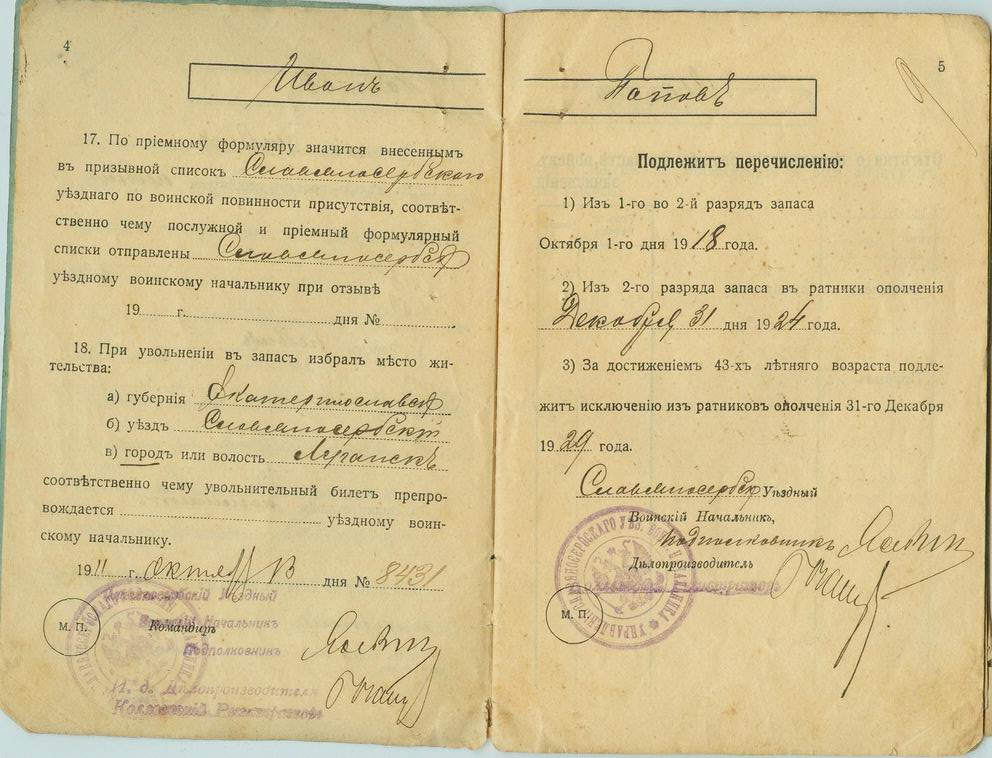 4
Иванъ
17. По пріемному формуляру значится внесеннымъ
въ призывной списокъ Славяносербскаго
уѣзднаго по воинской повинности присутствія, соотвѣт-
ственно чему послужной и пріемный формулярный
списки отправлены Славяносербск
уѣздному воинскому начальнику при отзывѣ
19 г. дня №
18. При увольненіи въ запасъ избралъ мѣсто жи-
тельства:
а) губернія Екатеринославск
б) уѣздъ Славяносербскій
в) городъ или волость Луганскъ
соотвѣтственно чему увольнительный билетъ препро-
вождается уѣздному воин-
скому начальнику.
1911 г. октяб 13 дня № 8431
Славяносербскій Уѣздный
Воинскій Начальникъ
М. П. Командиръ
Подполковникъ
И. д. Дѣлопроизводителя
Коллежскій Регистраторъ
5
Поповъ
Подлежитъ перечисленію:
1) Изъ 1-го во 2-й разрядъ запаса
Октября 1-го дня 1918 года.
2) Изъ 2-го разряда запаса въ ратники ополченія
Декабря 31 дня 1924 года.
3) За достиженіемъ 43-хъ лѣтняго возраста подле-
житъ исключенію изъ ратниковъ ополченія 31-го Декабря
1929 года.
Славяносербск Уѣздный
Воинскій Начальникъ,
Подполковникъ
Дѣлопроизводитель
Коллежскій Регистраторъ
М. П.
УПРАВЛЕНІЕ СЛАВЯНОСЕРБСКАГО УѢЗ. ВОИН. НАЧАЛЬНИКА